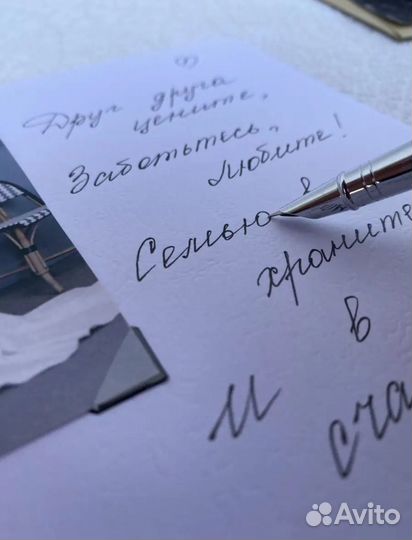 Друг друга
цените,
Заботьтесь,
любите!
Семью в
храните
в
И
Avito